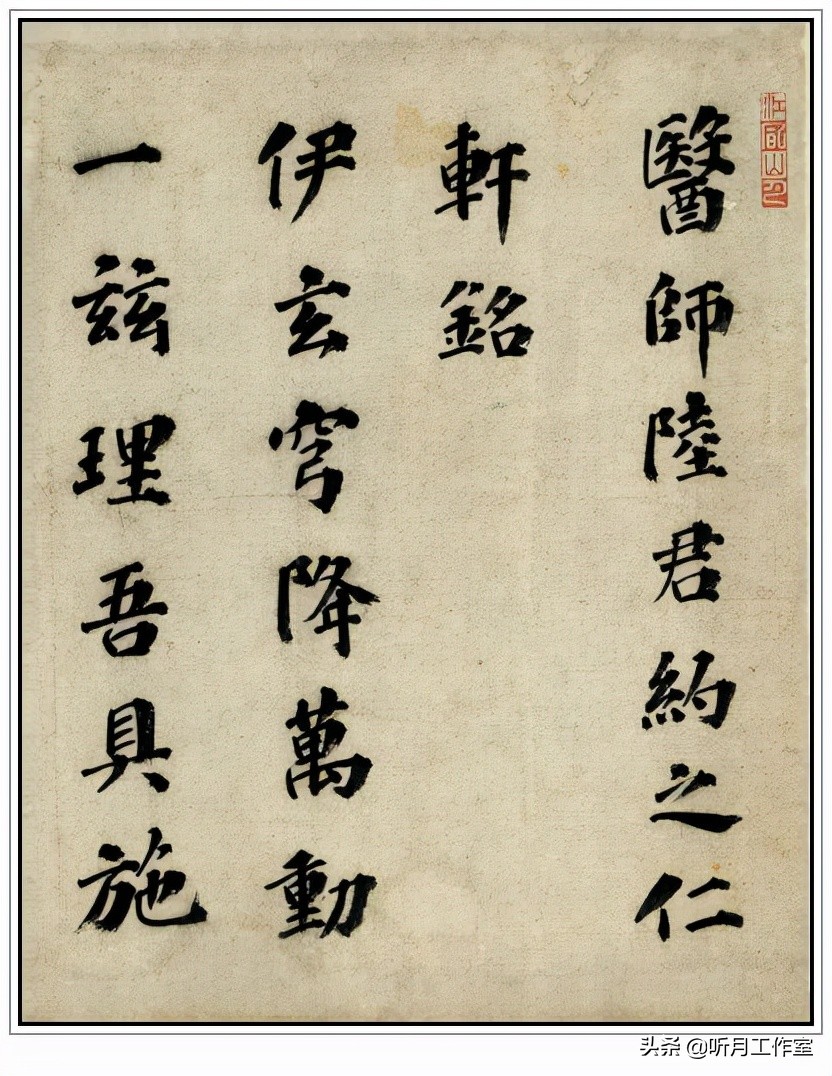 醫師陸君約之仁
軒銘
伊玄穹降萬動
一兹理吾具施
头条 @听月工作室